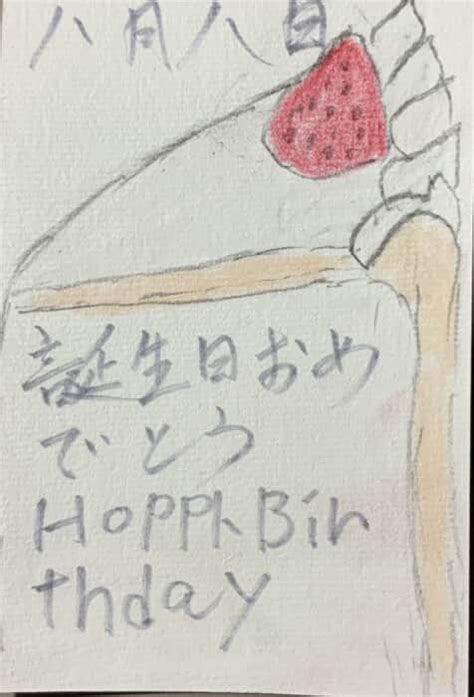 八月八日
誕生日おめ
でとう
HoPPh Bir
thday